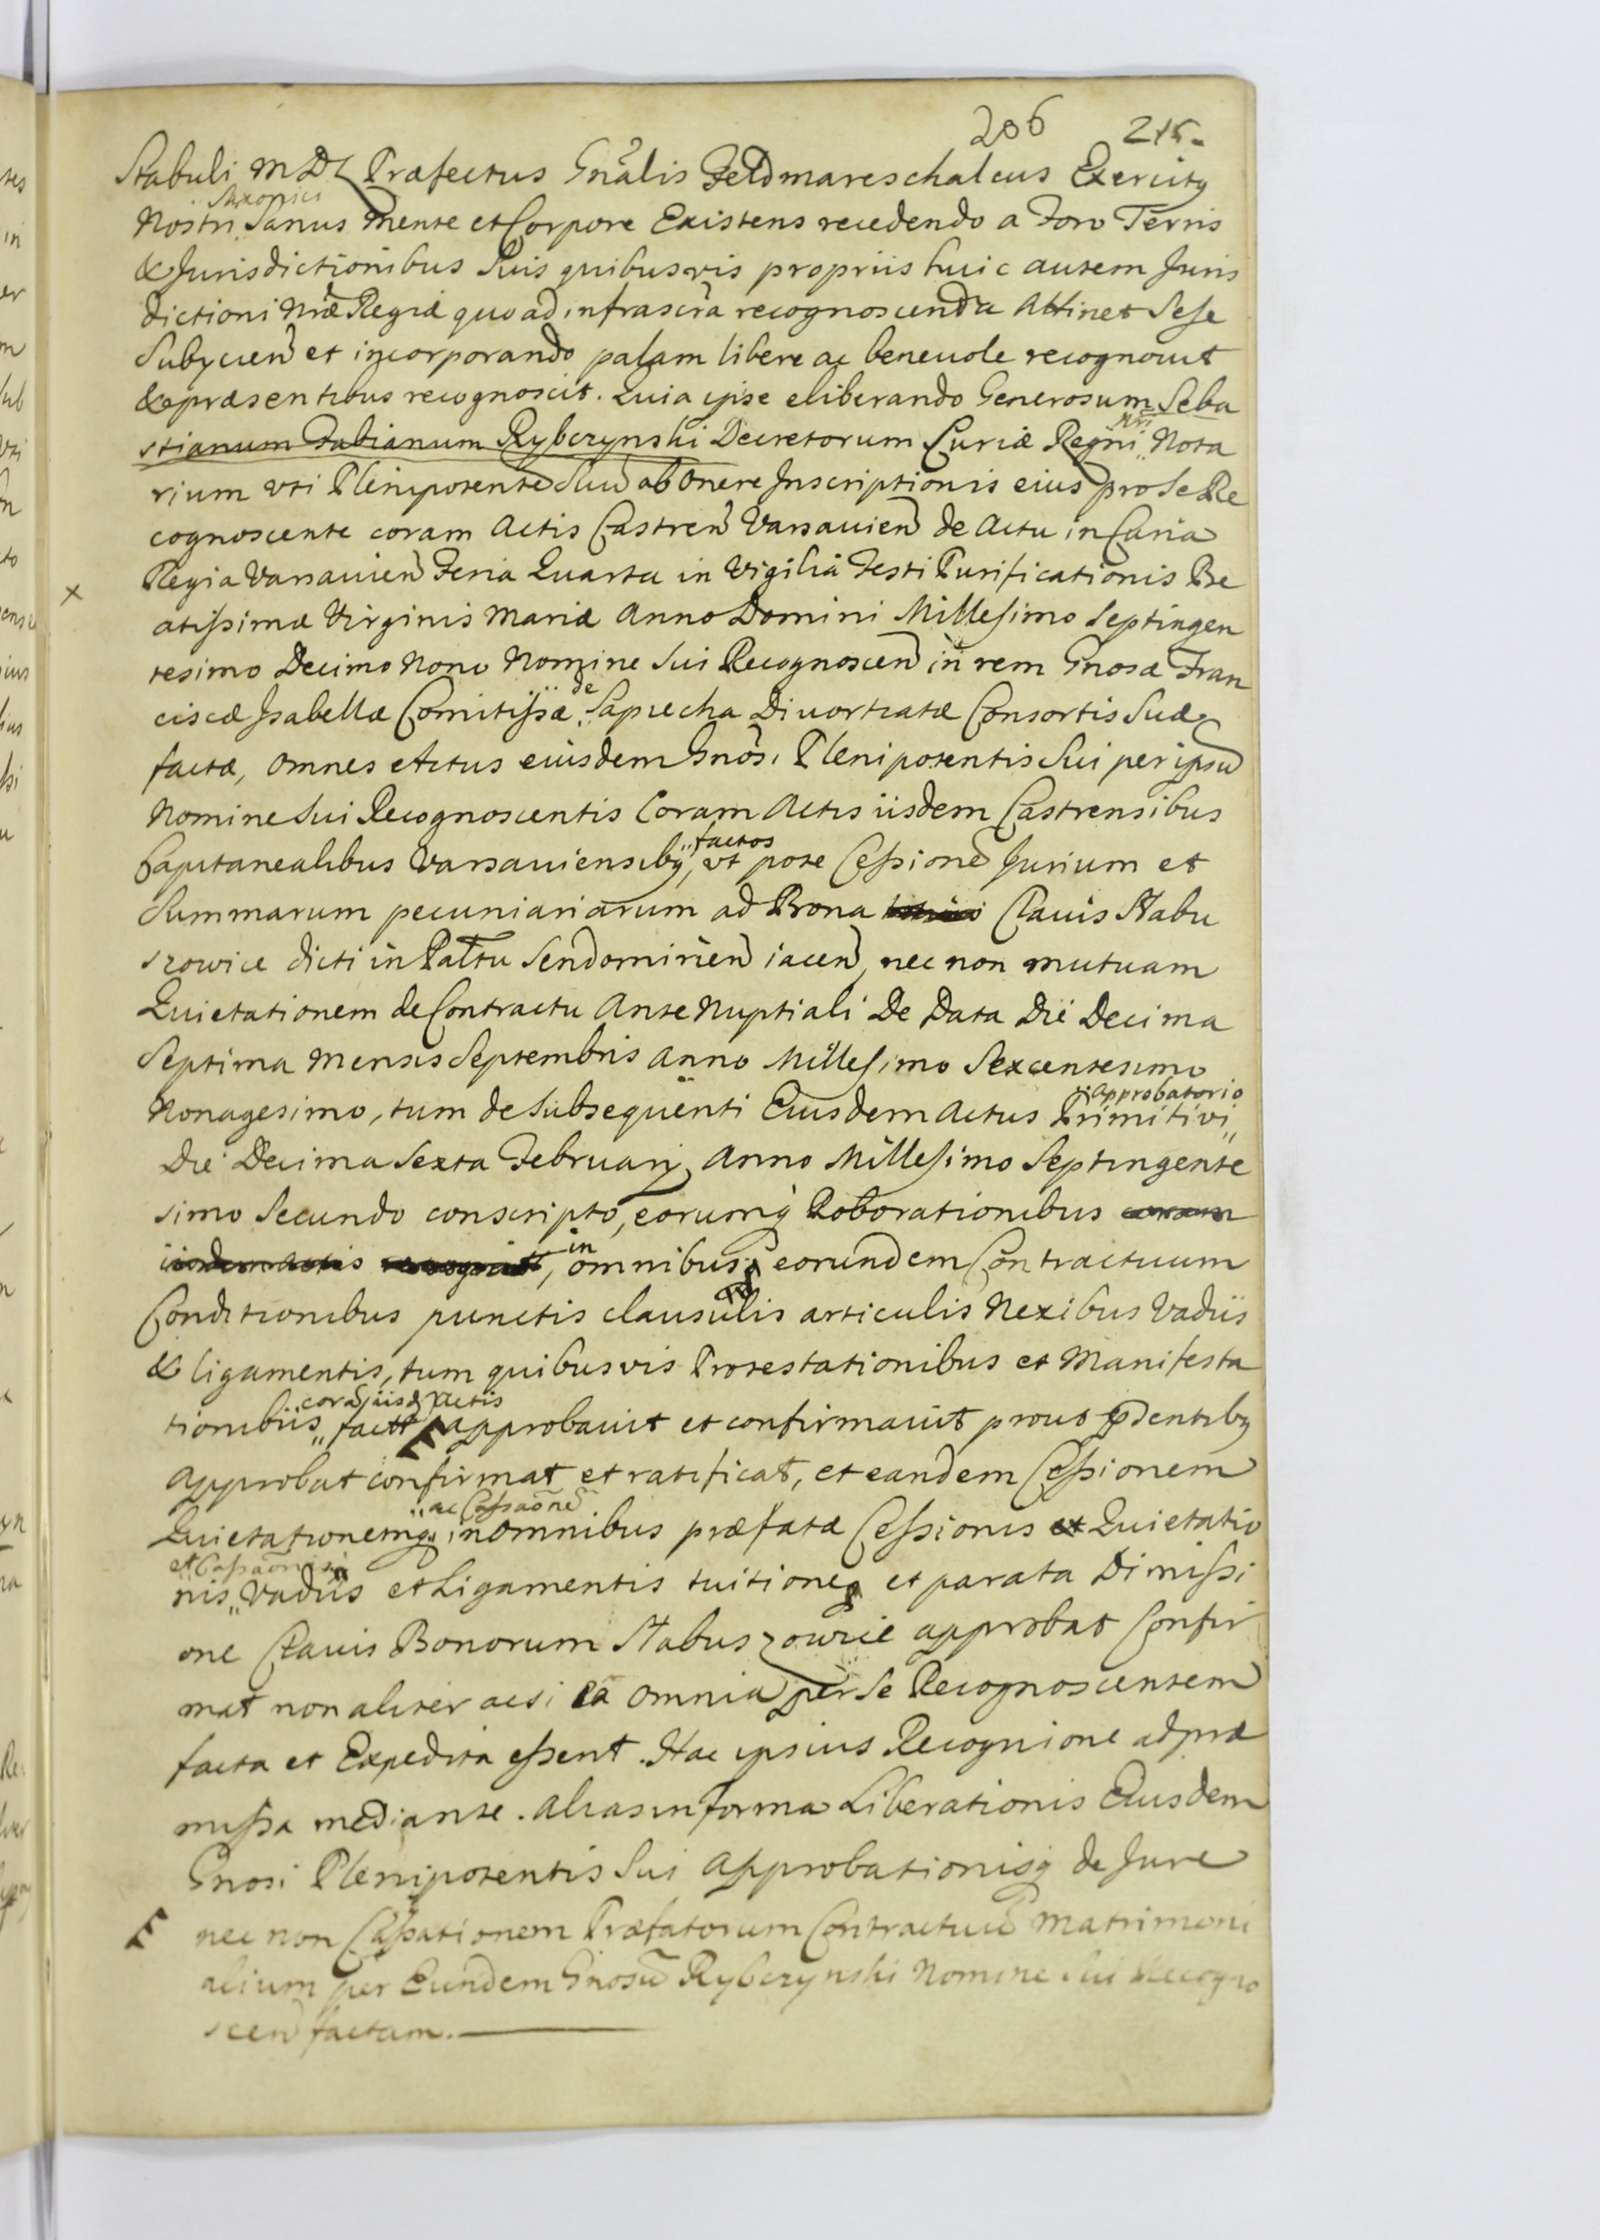 206 215.
Stabuli MDL Præfectus Gnãlis Feldmareschalcus Exercitꝰ
Saxonici
Nostri Sanus Mente et Corpore Existens recedendo a Foro Terris
& Jurisdictionibus Suis quibusvis propriis huic autem Juris
dictioni Nræ Regiæ quoad infrascrã recognoscenda Attinet Sese
Subycien et incorporando palam libere ac beneuole recognouit
& præsentibus recognoscit. Quia ipse eliberando Generosum Seba
Nri
stianum Fabianum Rybczynski Decretorum Curiæ Regni Nota
rium vti Plenipotente Suu ab Onere Inscriptionis eius pro Se Re
cognoscente coram Actis Castren Varsauien de Actu in Curia
Regia Varsauien Feria Quarta in Vigilia Festi Purificationis Be
x
atissimæ Virginis Mariæ Anno Domini Millesimo Septingen
tesimo Decimo Nono Nomine Sui Recognoscen in rem Gnosæ Fran
de
ciscæ Isabellæ Comitissæ Sapiecha Diuortiatæ Consortis Suæ
factæ, Omnes Actus eiusdem Gnosi Plenipotentis Sui per ipsu
Nomine Sui Recognoscentis Coram Actis iisdem Castrensibus
factos
Capitanealibus Varsauiensibꝫ, vt pote Cessione Jurium et
Summarum pecuniariarum ad Bona Clauis Stabu
szowice dicti in Palttu Sendomirien iacen, nec non mutuam
Quietationem de Contractu Ante Nuptiali De Data Die Decima
Septima Mensis Septembris Anno Millesimo Sexcentesimo
& Approbatorio
Nonagesimo, tum de Subsequenti Eiusdem Actus Primitivi
Die Decima Sexta February Anno Millesimo Septingente
simo Secundo conscripto, eorumq̃ Roborationibus coram
iisdem Actis recognit, in omnibus eorundem Contractuum
Conditionibus punctis clausulis articulis Nexibus Vadiis
& ligamentis, tum quibusvis Protestationibus et Manifesta
corã iisd Actis
tionibus fact approbauit et confirmauit prout pꝛdentibꝫ
Approbat confirmat et ratificat, et eandem Cessionem
ac Cassaõnẽ
Quietationemqꝫ in omnibus præfatæ Cessionis et Quietatio
et Cassaõnis
nis Vadiis et Ligamentis tuitioneqꝫ et parata Dimissi
one Clauis Bonorum Stabuszowice approbat Confir
mat non aliter acsi ea Omnia per Se Recognoscentem
facta et Expedita essent. Hac ipsius Recognione ad præ
missa mediante. Alias in forma Liberationis Eiusdem
Gnosi Plenipotentis Sui Approbationisq̃ de Jure
nec non Cassationem Præfatorum Contractuũ Matrimoni
alium per Eundem Gnosũ Rybczynski Nomine Sui Recogno
scen factam.